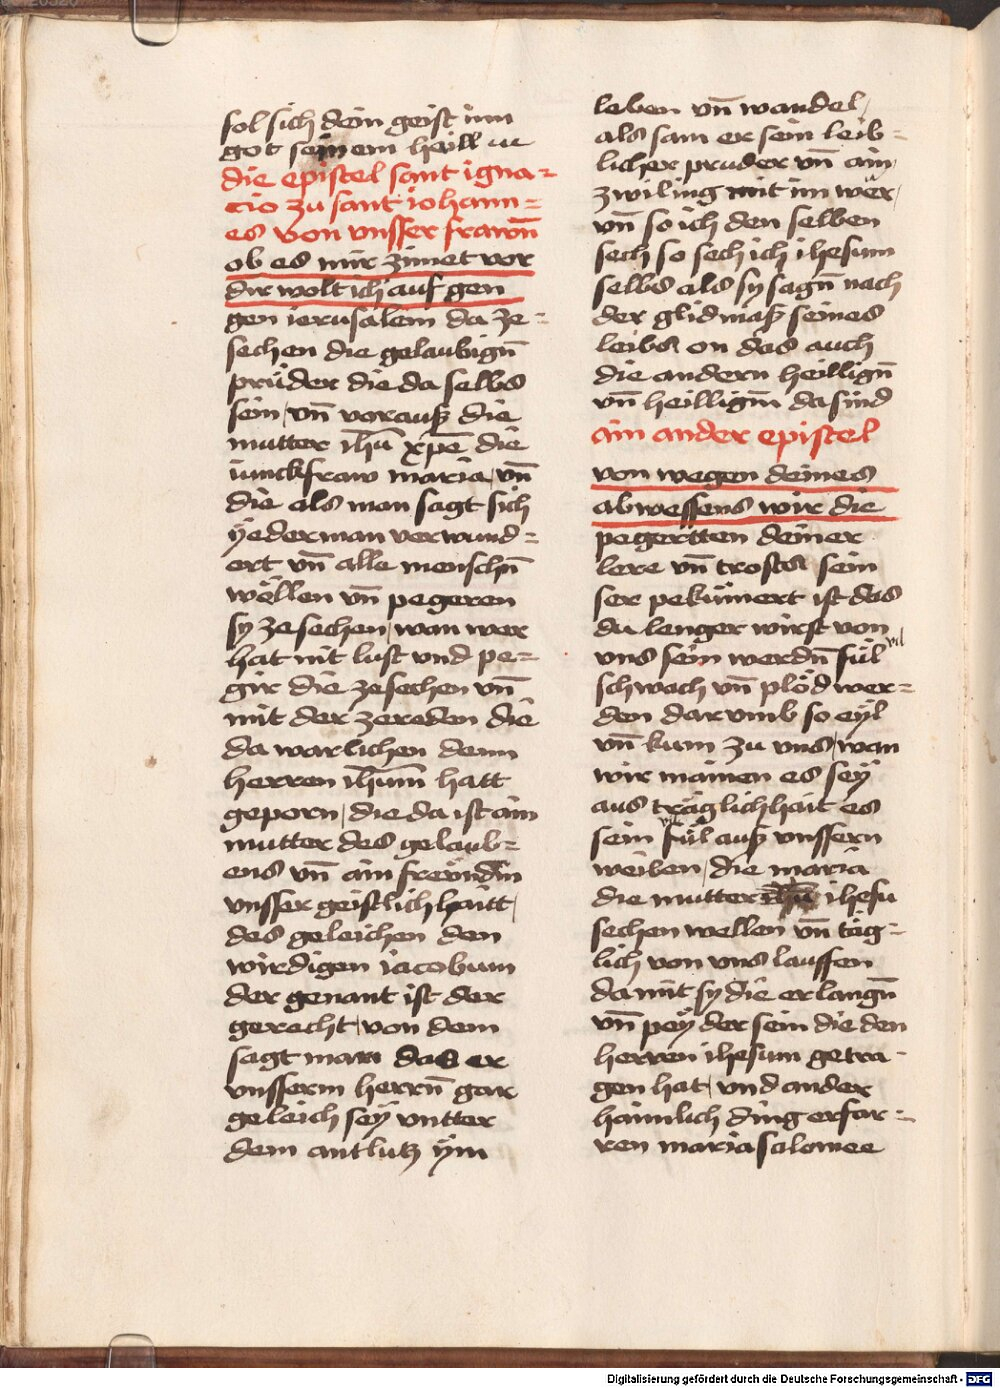 sol sich dein geist inn
got seinem heill ꝛc
die epistel sant igna=
cio zu sant iohann=
es von vnsser frawn̄
ob es mir zimet vor
dir wolt ich auf gen
gen ierusalem da ze=
sechen die gelaubign̄
prüder die da selbs
sein, vn̄ vorauß die
mutter ih̄u xp̄e die
iunckfraw maria, vn̄
die als man sagt sich
ÿederman verwund=
ert vn̄ alle menschn̄
wöllen vn̄ pegeren
sy ze sechen, wan wer
hat nit lust vnd pe=
gir die ze sechen vn̄
mit der ze reden die
da warlichen denn
herren ih̄um hatt
geporn, die da ist ain
mutter des gelaub=
ens vn̄ ain freündin
vnsser geistlichhaitt,
des geleichen den
wirdigen iacobum
der genant ist der
gerecht, von dem
sagt man das er
vnsserm herrn̄ gar
geleich seÿ vntter
dem antlutz ÿm
leben vn̄ wandel,
als sam er sein leib=
licher pruder vn̄ ain
zwiling mit im wer,
vn̄ so ich den selben
sech so sech ich ihesum
selbs als sy sagn̄ nach
der glidmaß seines
leibs on das auch
die andern heillign̄
vn̄ heilligin̄ da sind
ain ander epistel
von wegen deines
abwessens wir die
pegertten deiner
lere vn̄ trosts sein
ser pekümert ist das
du lenger wirst von
vns sein werdn̄ fül vil
schwach vn̄ plöd wer=
den darumb so eÿl
vn̄ kum zu vns, wan
wir mainen es seÿ
aus träglichhait es
sein fül auß vnssern
weiben, die maria
die mutter ihesu
sechen wellen vn̄ täg=
lich von vns lauffen
da mit sy die erlangn̄
vn̄ peÿ der sein die den
herren ihesum getra=
gen hat, vnd ander
haimlich ding erfar=
ren maria salomee
Digitalisierung gefördert durch die Deutsche Forschungsgemeinschaft - DFG